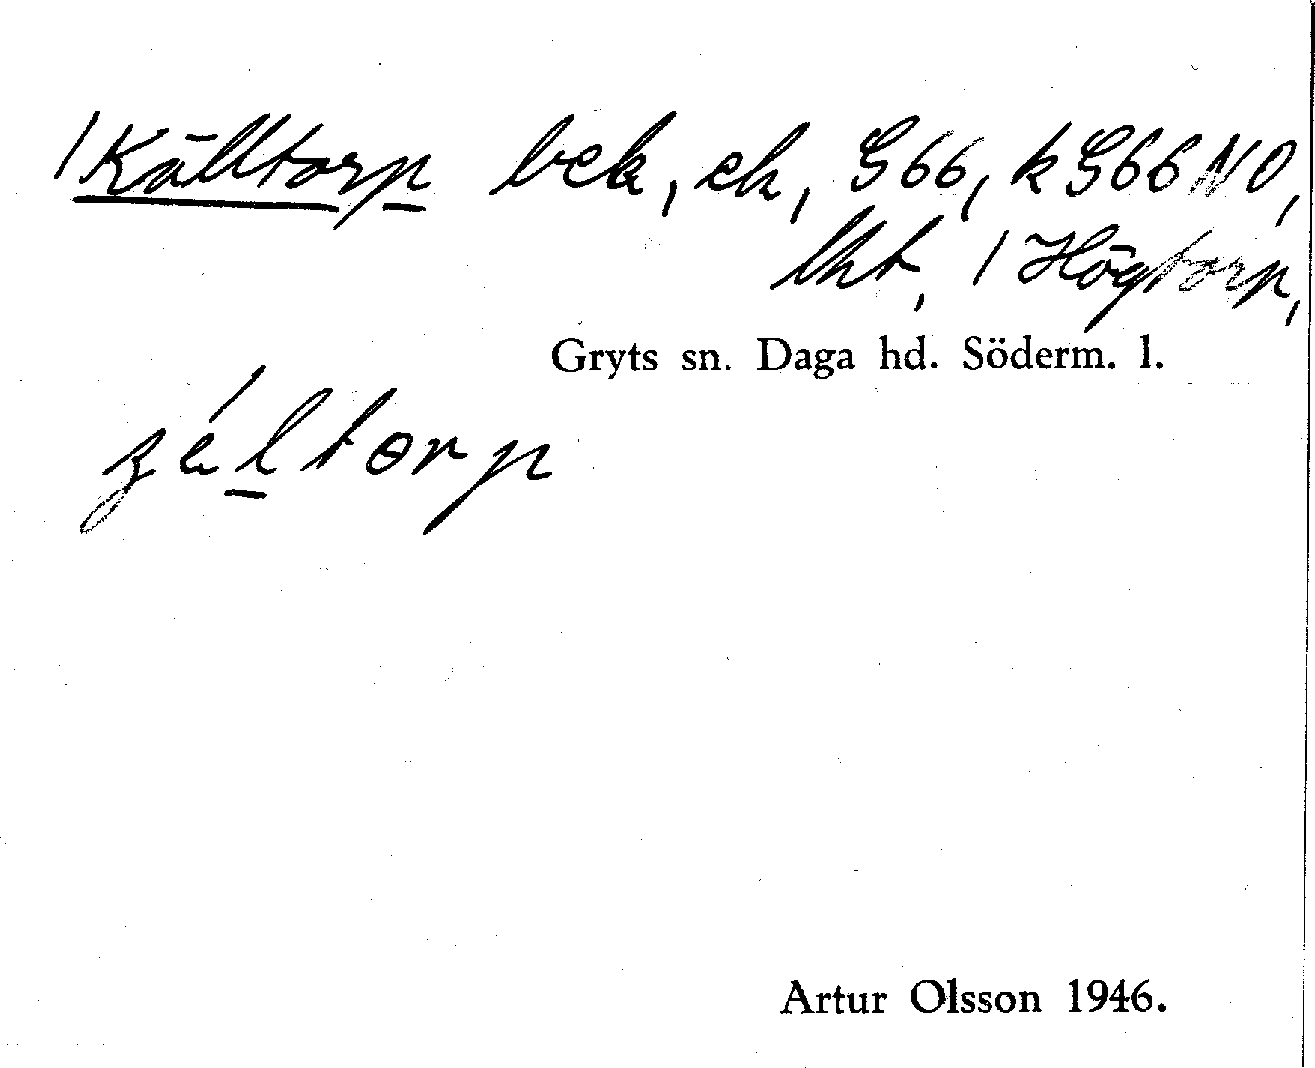 /Källtorp bck, ek, G66, k G66 NO,
lht, /Högtorp,
Gryts sn. Daga hd. Söderm. l.
ʒéltorp
Artur Olsson 1946.